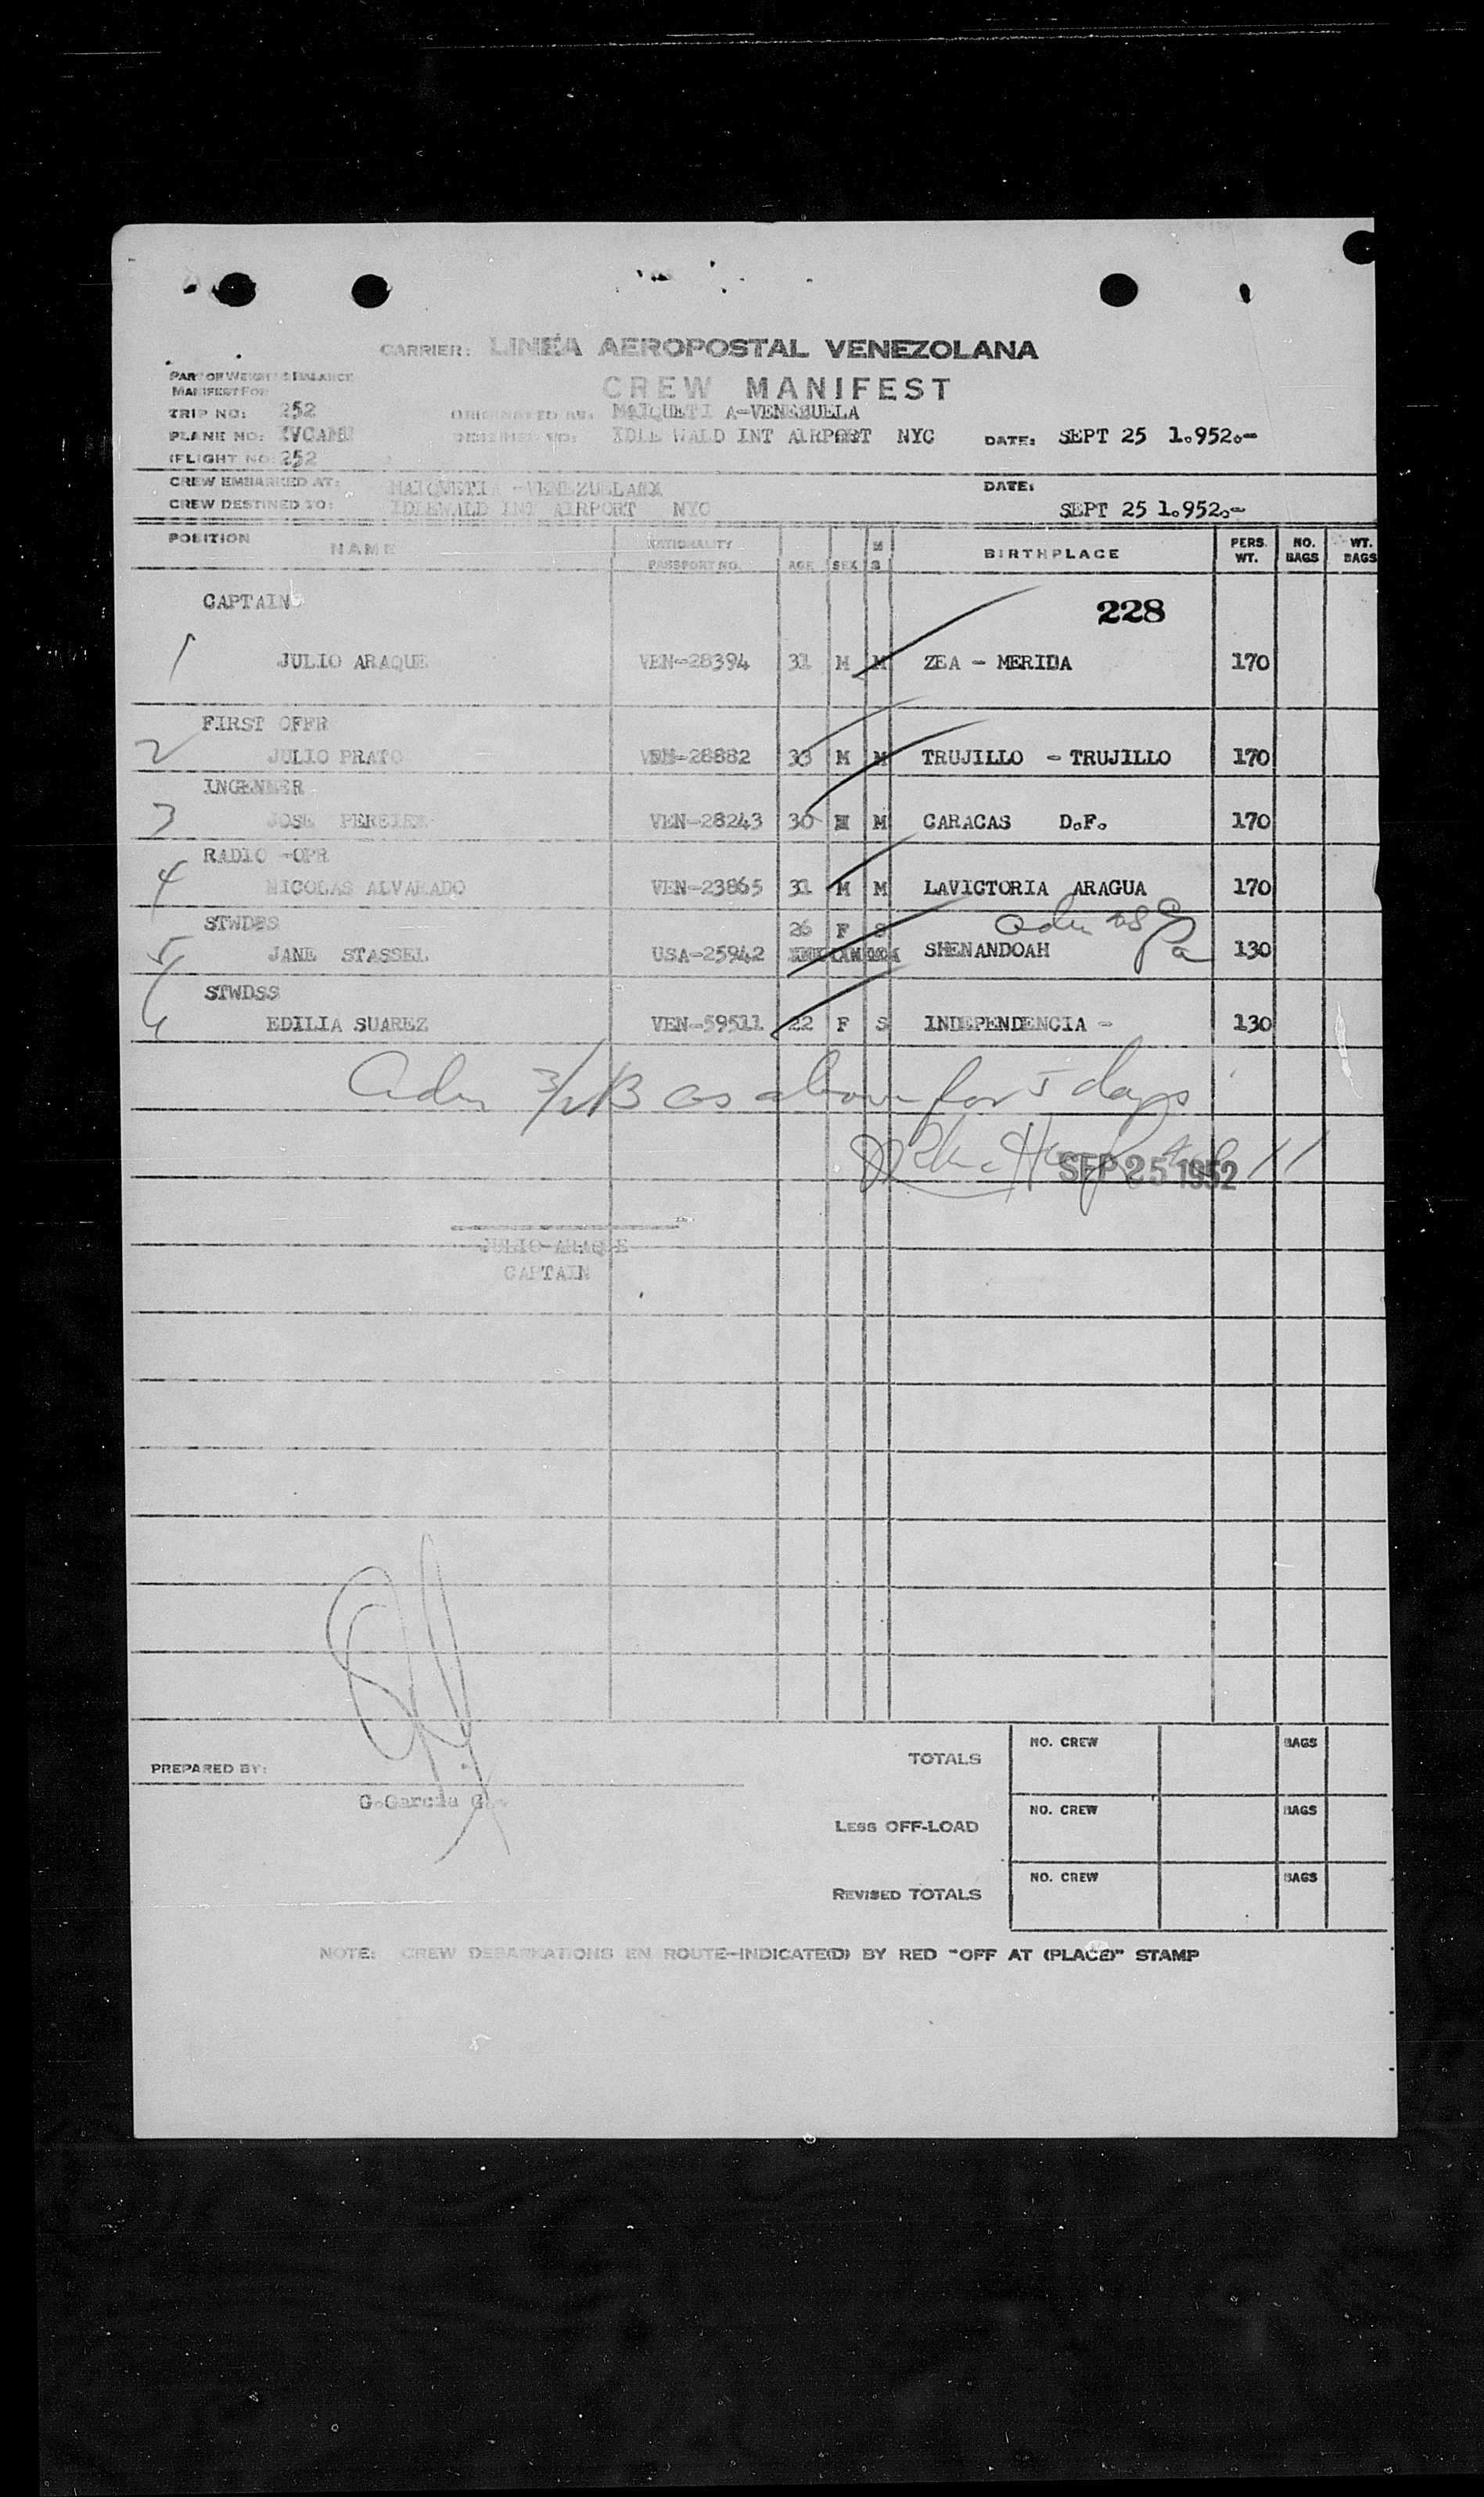 CARRIER: LINEA AEROPOSTAL VENEZOLANA
PART OF WEIGHT & BALANCE
MANIFEST FOR
CREW MANIFEST
TRIP NO: 252 ORIGINATED AT: MAIQUETI A-VENEZUELA
PLANE NO: DESTINED TO: IDLE WALD INT AIRPORT NYC DATE: SEPT 25 1.952.-
(FLIGHT NO: 252
CREW EMBARKED AT: MAIQUETIA -VENEZUELA DATE:
CREW DESTINED TO: IDLEWALD INT AIRPORT NYC SEPT 25 1.952.-
POSITION NAME NATIONALITY PASSPORT NO. AGE SEX M S BIRTHPLACE PERS. WT. NO. BAGS WT. BAGS
CAPTAIN 228
1 JULIO ARAQUE VEN-28394 31 M M ZEA - MERIDA 170
FIRST OFFR
2 JULIO PRATO VEN-28882 33 M M TRUJILLO - TRUJILLO 170
INGENEER
3 JOSE VEN-28243 30 M M CARACAS D.F. 170
RADIO -OPR
4 NICOLAS ALVARADO VEN-23865 31 M M LAVICTORIA ARAGUA 170
STWDSS 26 F S Adm
5 JANE STASSEL USA-25942 SHENANDOAH Pa 130
STWDSS
6 EDILIA SUAREZ VEN-59511 22 F S INDEPENDENCIA - 130
Adm 3/2B as above for 5 days
SEP 25 1952
JULIO ARAQUE
CAPTAIN
TOTALS NO. CREW BAGS
PREPARED BY:
G.Garcia G.
LESS OFF-LOAD NO. CREW BAGS
REVISED TOTALS NO. CREW BAGS
NOTE: CREW DEBARKATIONS EN ROUTE-INDICATE(D) BY RED "OFF AT (PLACE)" STAMP